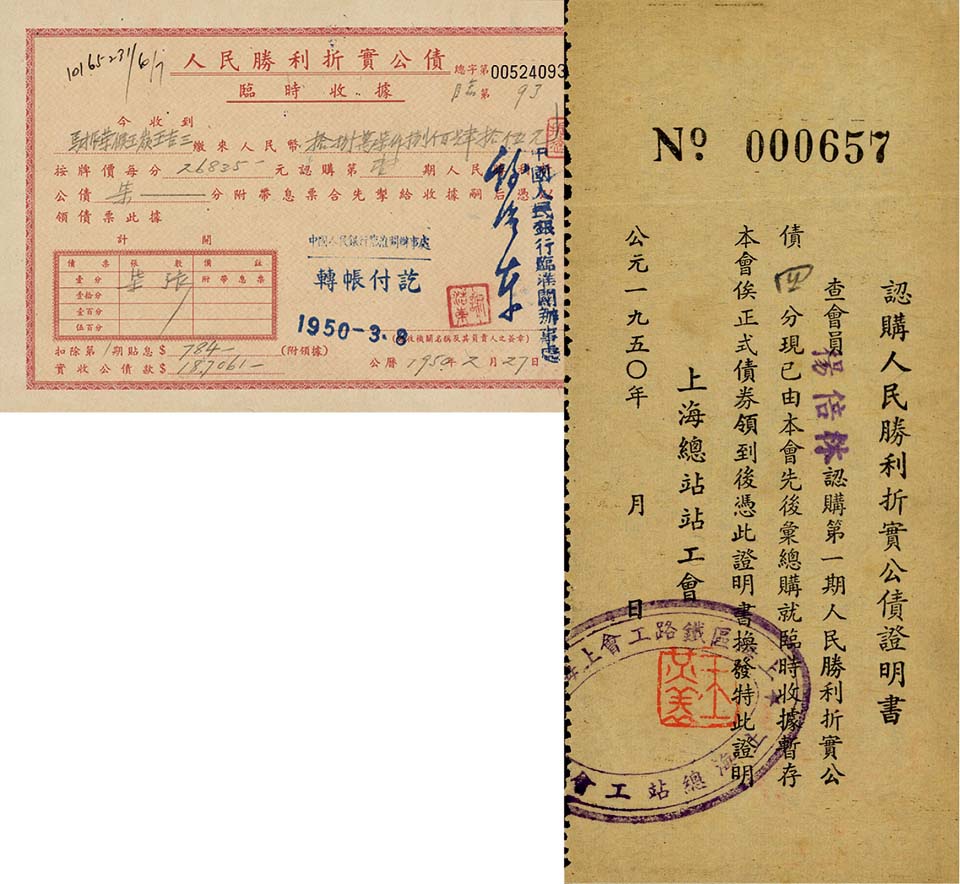 10165231/60/7
人民勝利折實公債
臨時收據
總字第00524093
第 93
今收到
繳來人民幣
按牌價每分 26835- 元認購第壹期人民
公債 柒 分附帶息票合先掣給收據嗣后憑
領債票此據
計開
債票 張數 備註
壹分 柒張 附帶息票
壹拾分
壹百分
伍百分
扣除第1期貼息$ 784- (附領據)
實收公債款$ 187061-
公曆1950年2月27日
收機關名稱及其負責人之簽章)
轉帳付訖
1950-3.8
中國人民銀行臨淮關辦事處
中國人民銀行臨淮關辦事處
No 000657
認購人民勝利折實公債證明書
查會員楊信林認購第一期人民勝利折實公
債四分現已由本會先後彙總購就臨時收據暫存
本會俟正式債券領到後憑此證明書換發特此證明
上海總站站工會
公元一九五〇年 月 日
上海區鐵路工會上海
上海總站工會